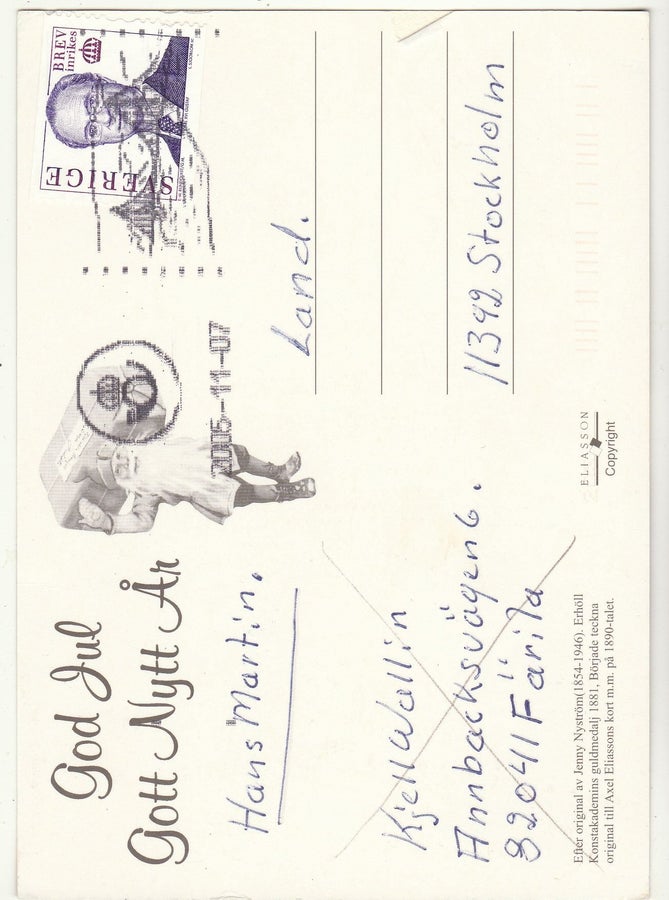 God Jul
Gott Nytt År
Hans Martin.
Kjell Wallin
Annbacksvägen 6.
82041 Färila
Efter original av Jenny Nyström(1854-1946). Erhöll
Konstakademins guldmedalj 1881, Började teckna
original till Axel Eliassons kort m.m. på 1890-talet.
ELIASSON
Copyright
2005-11-07
BREV
inrikes
SVERIGE
Land.
11392 Stockholm